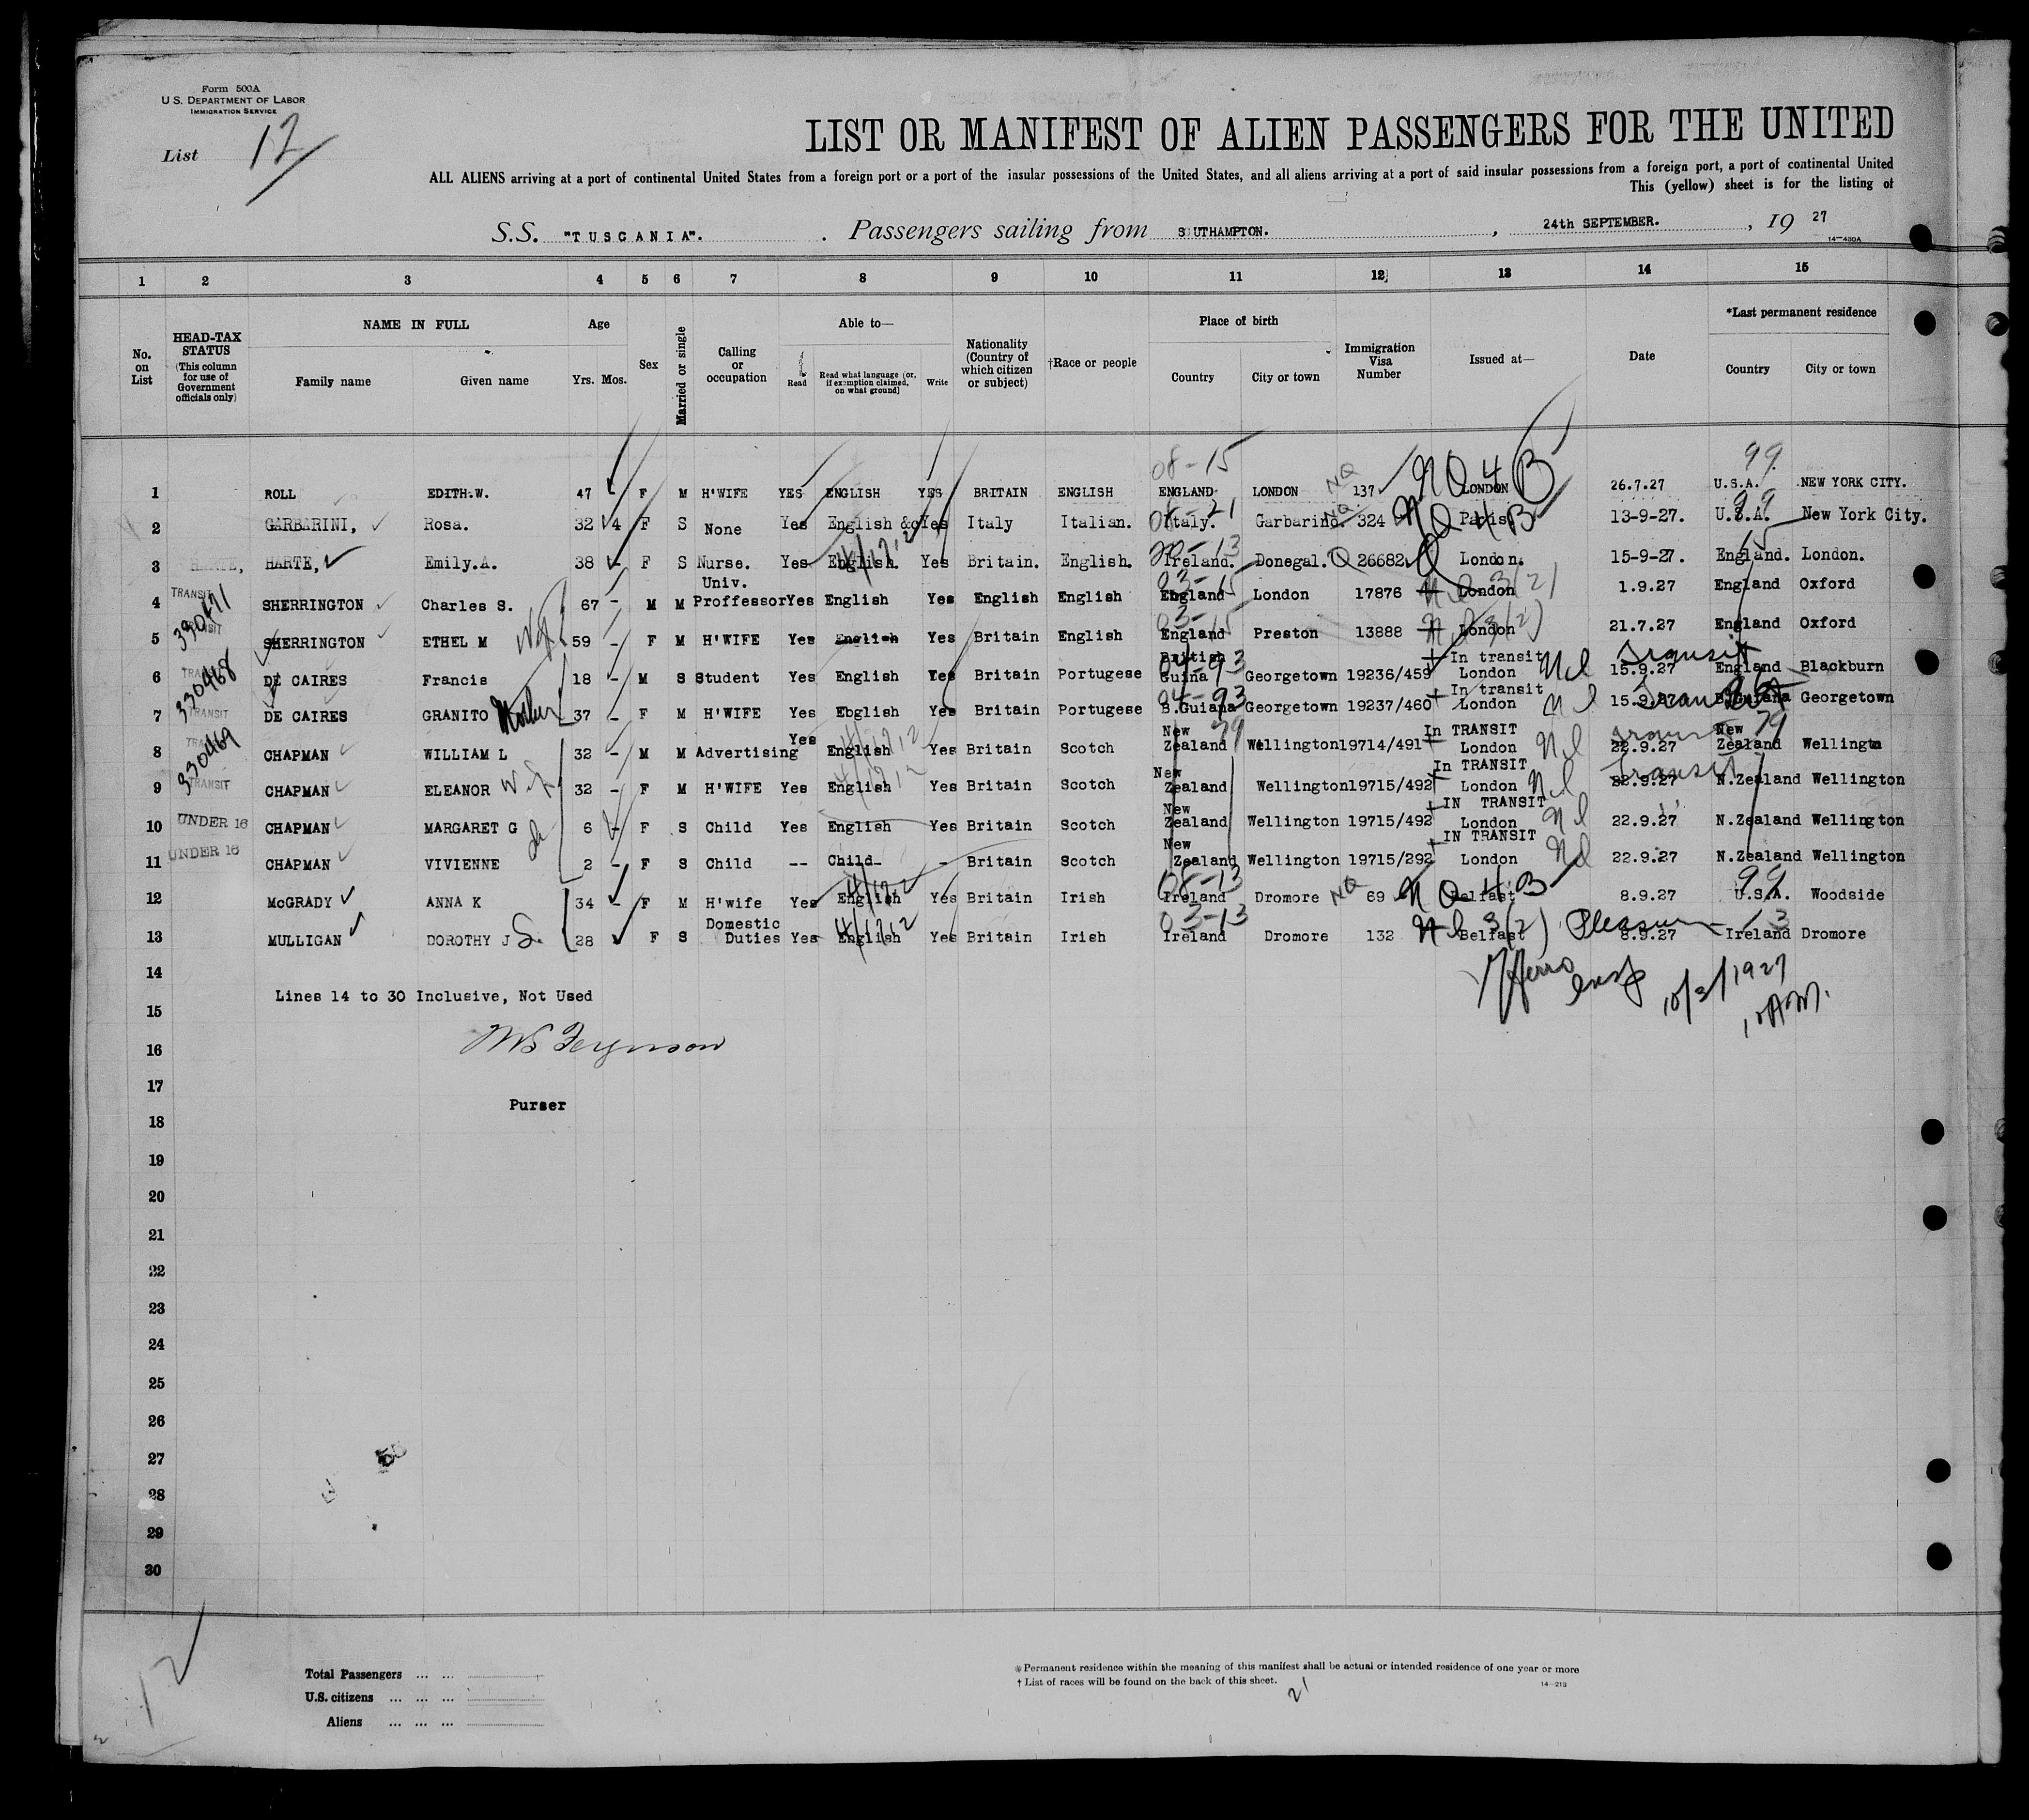 Form 500A
U.S. DEPARTMENT OF LABOR
IMMIGRATION SERVICE
List 12
LIST OR MANIFEST OF ALIEN PASSENGERS FOR THE UNITED
ALL ALIENS arriving at a port of continental United States from a foreign port or a port of the insular possessions of the United States, and all aliens arriving at a port of said insular possessions from a foreign port, a port of continental United
This (yellow) sheet is for the listing of
S.S. "TUSCANIA". Passengers sailing from S UTHAMPTON. , 24th SEPTEMBER. , 19 27
14—430A
1 2 3 4 5 6 7 8 9 10 11 12 13 14 15
No. on List
HEAD-TAX STATUS (This column for use of Government officials only)
NAME IN FULL
Family name Given name
Age
Yrs. Mos.
Sex
Married or single
Calling or occupation
Able to—
Read Read what language (or, if exemption claimed, on what ground) Write
Nationality (Country of which citizen or subject)
†Race or people
Place of birth
Country City or town
Immigration Visa Number
Issued at—
Date
*Last permanent residence
Country City or town
08-15 99
1 ROLL EDITH.W. 47 - F M H'WIFE YES ENGLISH YES BRITAIN ENGLISH ENGLAND LONDON NQ 137 NQ 4 B LONDON 26.7.27 U.S.A. NEW YORK CITY.
08-21 99
2 GARBARINI, Rosa. 32 4 F S None Yes English &c Yes Italy Italian. Italy. Garbarino. NQ 324 NQ 4 B Paris 13-9-27. U.S.A. New York City.
13 15
3 HARTE, HARTE, Emily.A. 38 F S Nurse. Yes English. Yes Britain. English. Ireland. Donegal. Q 26682 Q London. 15-9-27. England. London.
TRANSIT 03-15
4 330471 SHERRINGTON Charles S. 67 - M M Univ. Proffessor Yes English Yes English English England London 17876 3(2) London 1.9.27 England Oxford
TRANSIT 03-15
5 SHERRINGTON ETHEL M Wife 59 - F M H'WIFE Yes English Yes Britain English England Preston 13888 3(2) London 21.7.27 England Oxford
TRANSIT 04-93 Transit
6 330468 DE CAIRES Francis 18 - M S Student Yes English Yes Britain Portugese British Guina Georgetown 19236/459 In transit London 15.9.27 England Blackburn
TRANSIT 04-93 Transit
7 DE CAIRES GRANITO Mother 37 - F M H'WIFE Yes Ebglish Yes Britain Portugese B.Guiana Georgetown 19237/460 In transit London 15.9.27 B.Guiana Georgetown
79 Transit 79
8 330469 CHAPMAN WILLIAM L 32 - M M Advertising Yes English Yes Britain Scotch New Zealand Wellington 19714/491 In TRANSIT London 22.9.27 New Zealand Wellingtn
TRANSIT Transit
9 CHAPMAN ELEANOR Wife 32 - F M H'WIFE Yes English Yes Britain Scotch New Zealand Wellington 19715/492 In TRANSIT London 22.9.27 N.Zealand Wellington
UNDER 16
10 CHAPMAN MARGARET G 6 - F S Child Yes English Yes Britain Scotch New Zealand Wellington 19715/492 IN TRANSIT London 22.9.27 N.Zealand Wellington
UNDER 16
11 CHAPMAN VIVIENNE 2 - F S Child -- Child - Britain Scotch New Zealand Wellington 19715/292 IN TRANSIT London 22.9.27 N.Zealand Wellington
08-13 99
12 McGRADY ANNA K 34 - F M H'wife Yes English Yes Britain Irish Ireland Dromore NQ 69 NQ 4B Belfast 8.9.27 U.S.A. Woodside
03-13 13
13 MULLIGAN DOROTHY J S. 28 F S Domestic Duties Yes English Yes Britain Irish Ireland Dromore 132 3(2) Belfast Pleasure 8.9.27 Ireland Dromore
14
Lines 14 to 30 Inclusive, Not Used
insp 10/3/1927 10AM.
15
16 Ferguson
17
Purser
18
19
20
21
22
23
24
25
26
27
28
29
30
12
Total Passengers ... ...
U.S. citizens ... ... ...
Aliens ... ... ...
* Permanent residence within the meaning of this manifest shall be actual or intended residence of one year or more
† List of races will be found on the back of this sheet.
14—213
21